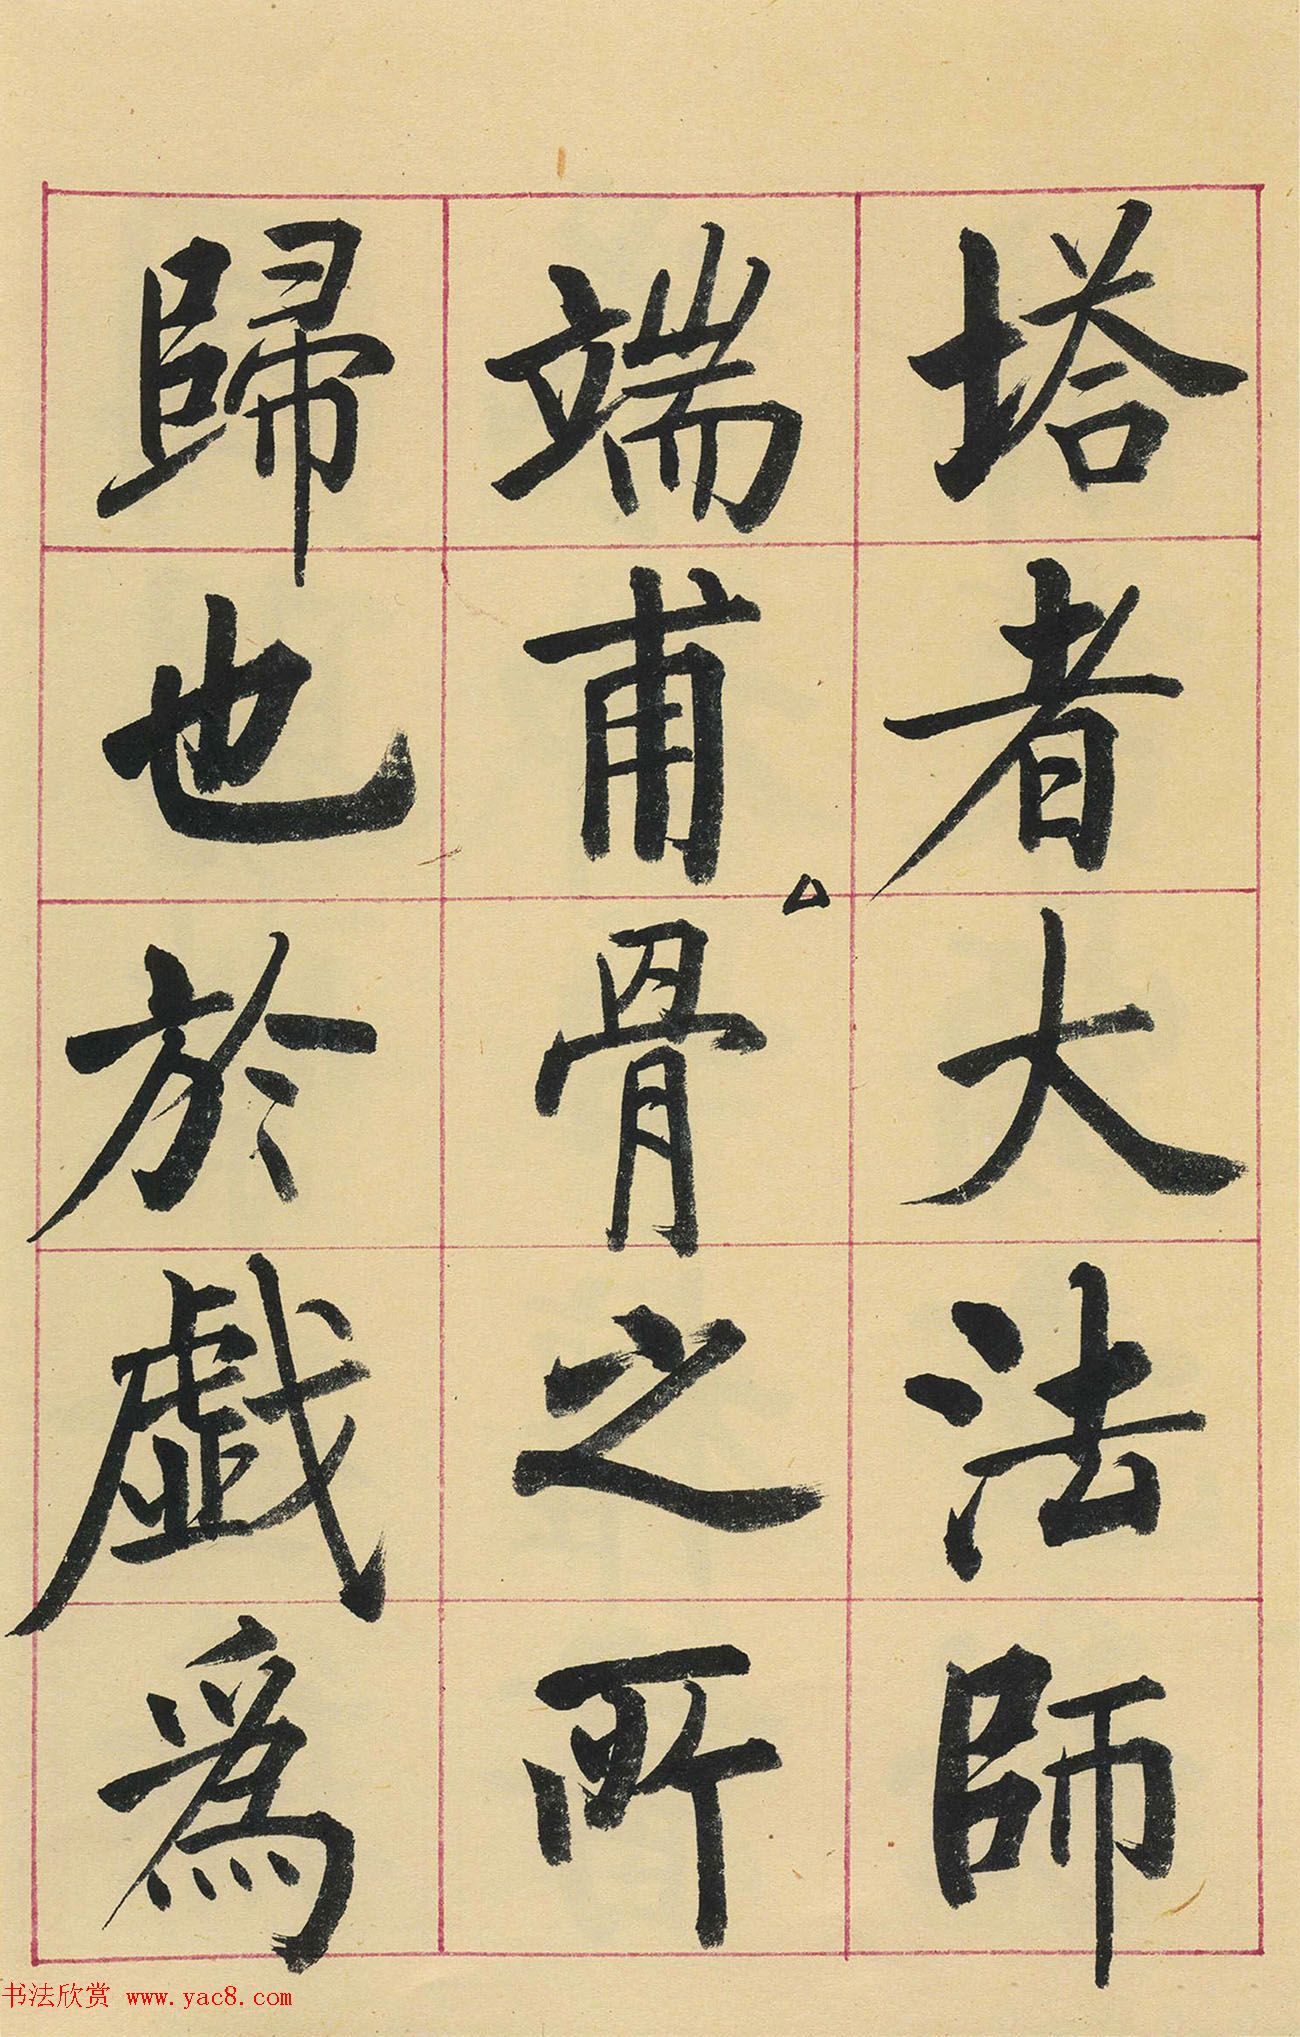 塔者大法師
端甫骨之所
歸也於戲為
书法欣赏 www.yac8.com